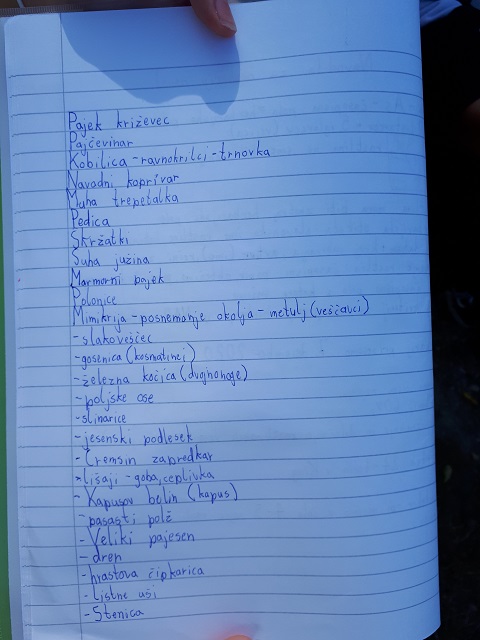 Pajek križevec
Pajčevinar
Kobilica - ravnokrilci - trnovka
Navadni koprivar
Muha trepetalka
Pedica
Škržatki
Suha južina
Marmorni pajek
Polonice
Mimikrija - posnemanje okolja - metulj (veščavci)
- slakovščec
- gosenica (kosmatinci)
- železna kačica (dvojnonoge)
- poljske ose
- slinarice
- jesenski podlesek
- Čremsin zapredkar
- lišaji - goba, cepljivka
- Kapusov belin (kapus)
- pasasti polž
- Veliki pajesen
- dren
- hrastova čipkarica
- listne uši
- Stenica